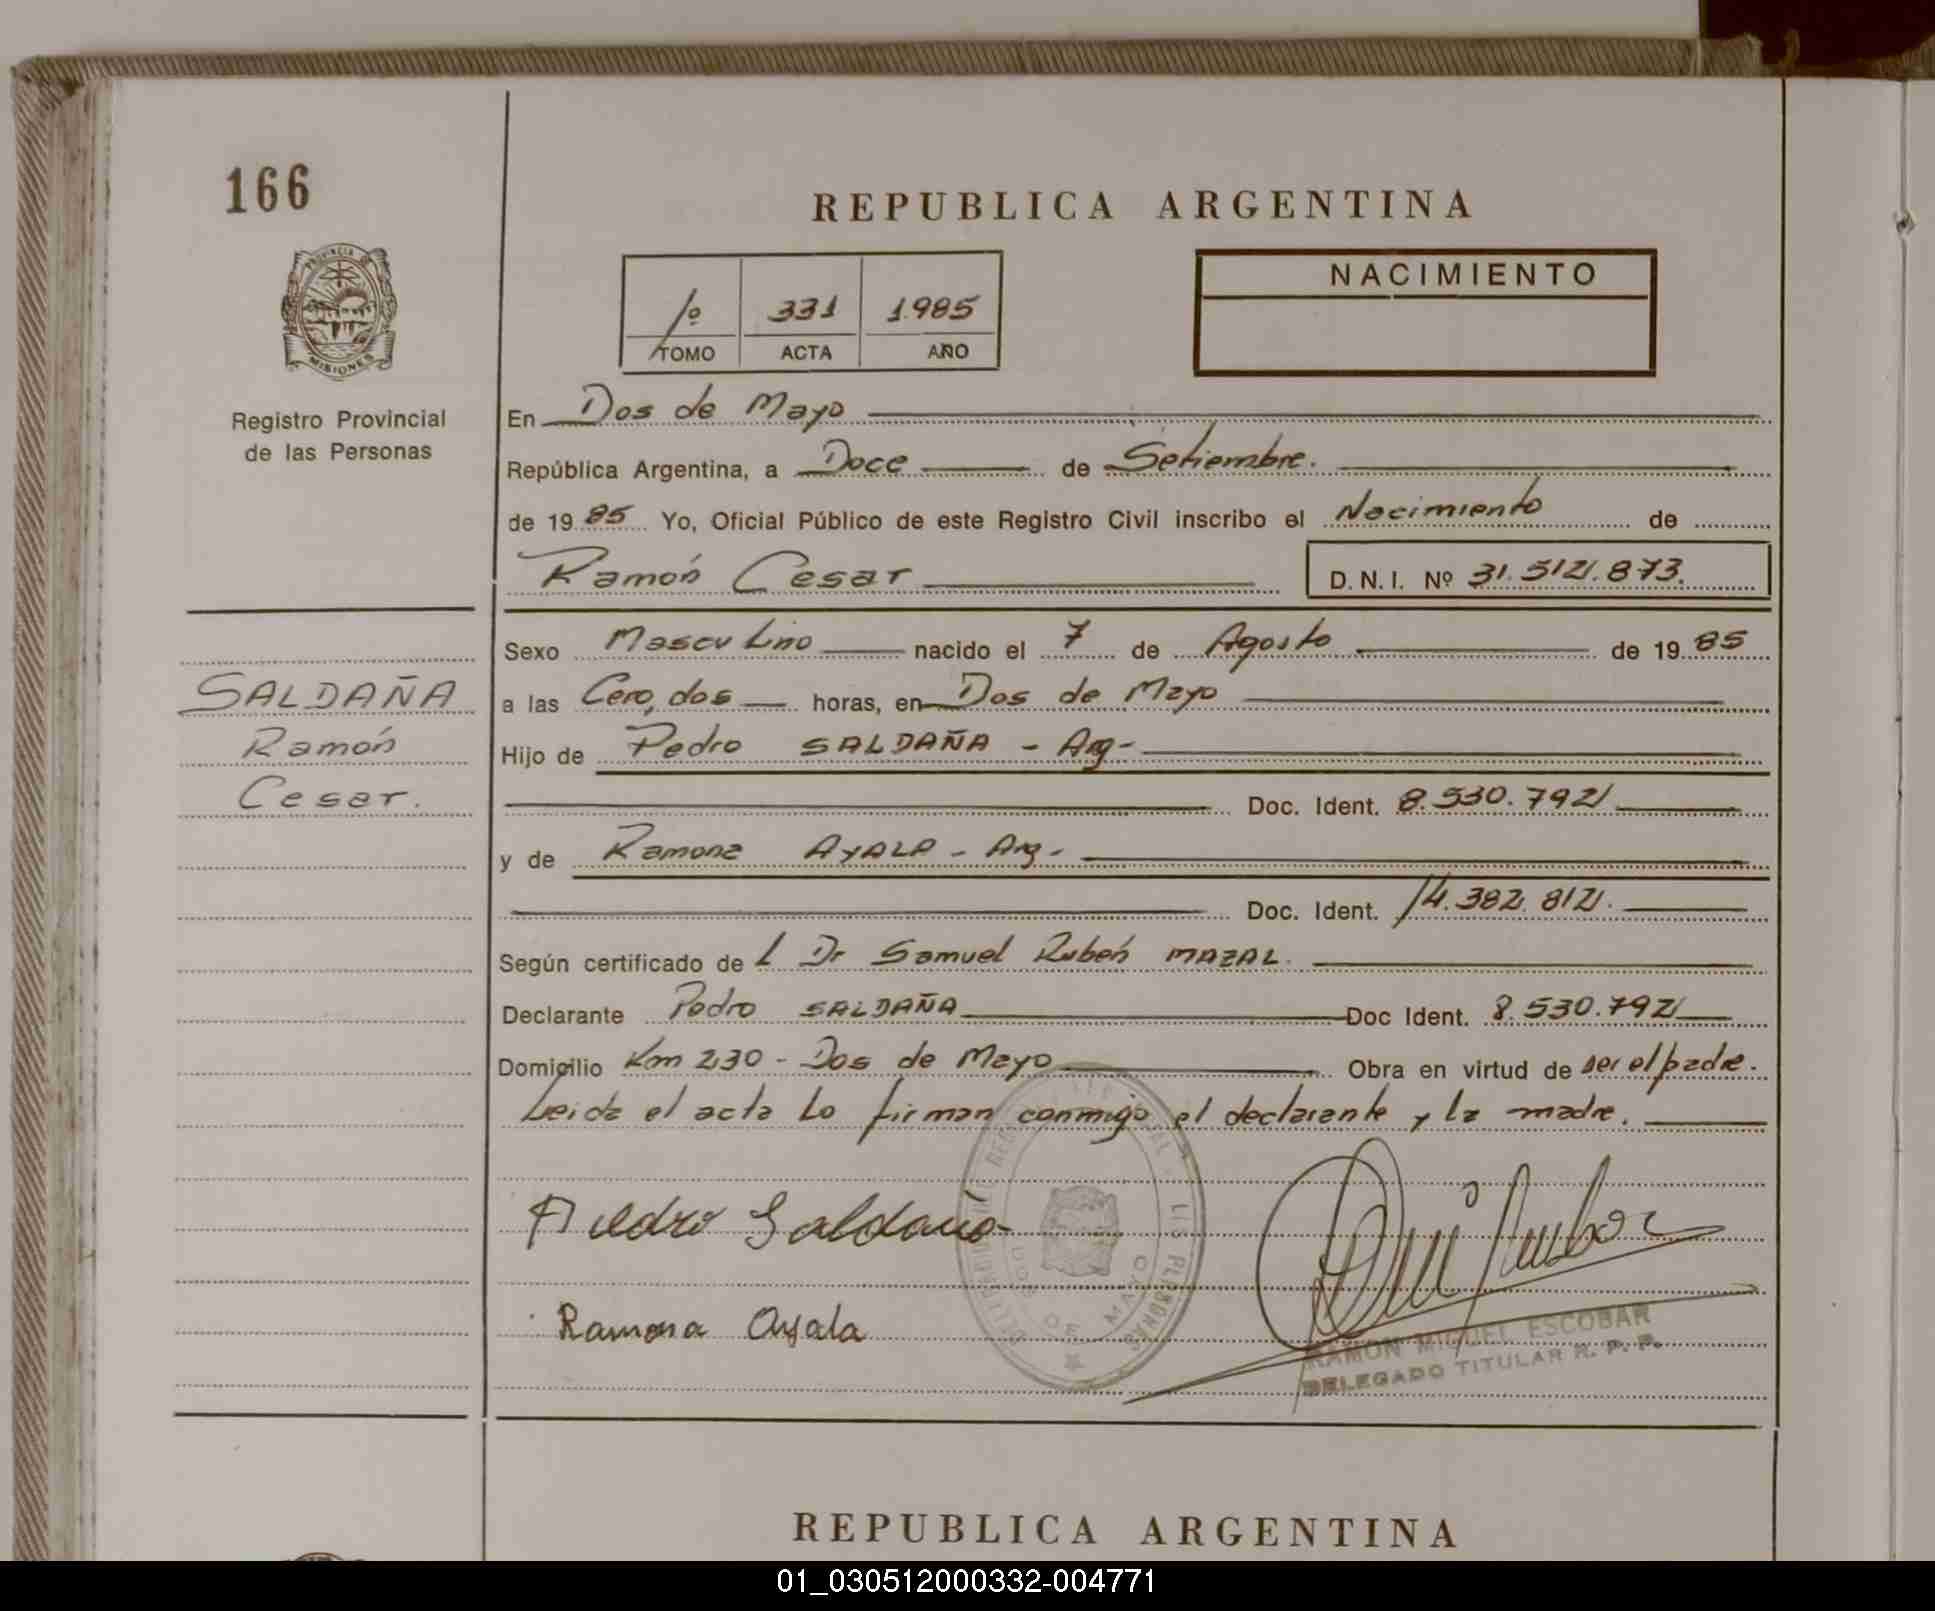 166
REPUBLICA ARGENTINA
PROVINCIA DE
MISIONES
Registro Provincial
de las Personas
1º 331 1985
TOMO ACTA AÑO
NACIMIENTO
En Dos de Mayo
República Argentina, a Doce de Setiembre.
de 1985 Yo, Oficial Público de este Registro Civil inscribo el Nacimiento de
Ramón Cesar D.N.I. Nº 31.512.873.
Sexo Masculino nacido el 7 de Agosto de 1985
SALDAÑA
Ramón
Cesar.
a las Cero, dos horas, en Dos de Mayo
Hijo de Pedro SALDAÑA - Arg-
Doc. Ident. 8.530.792
y de Ramona AYALA - Arg-
Doc. Ident. 14.382.812.
Según certificado de l Dr Samuel Rubén MAZAL.
Declarante Pedro SALDAÑA Doc Ident. 8.530.792
Domicilio Km 230 - Dos de Mayo Obra en virtud de ser el padre.
Leida el acta lo firman conmigo el declarante y la madre.
Ramona Ayala
DOS DE MAYO
RAMON MIGUEL ESCOBAR
DELEGADO TITULAR R. P. P.
REPUBLICA ARGENTINA
01_030512000332-004771